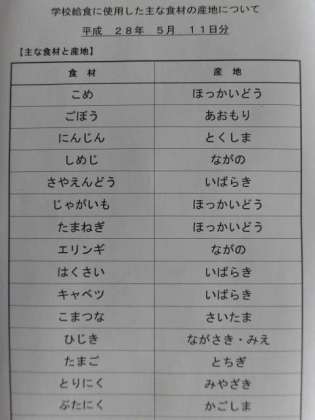 学校給食に使用した主な食材の産地について
平成 28年 5月 11日分
【主な食材と産地】
食 材 産 地
こめ ほっかいどう
ごぼう あおもり
にんじん とくしま
しめじ ながの
さやえんどう いばらき
じゃがいも ほっかいどう
たまねぎ ほっかいどう
エリンギ ながの
はくさい いばらき
キャベツ いばらき
こまつな さいたま
ひじき ながさき・みえ
たまご とちぎ
とりにく みやざき
ぶたにく かごしま